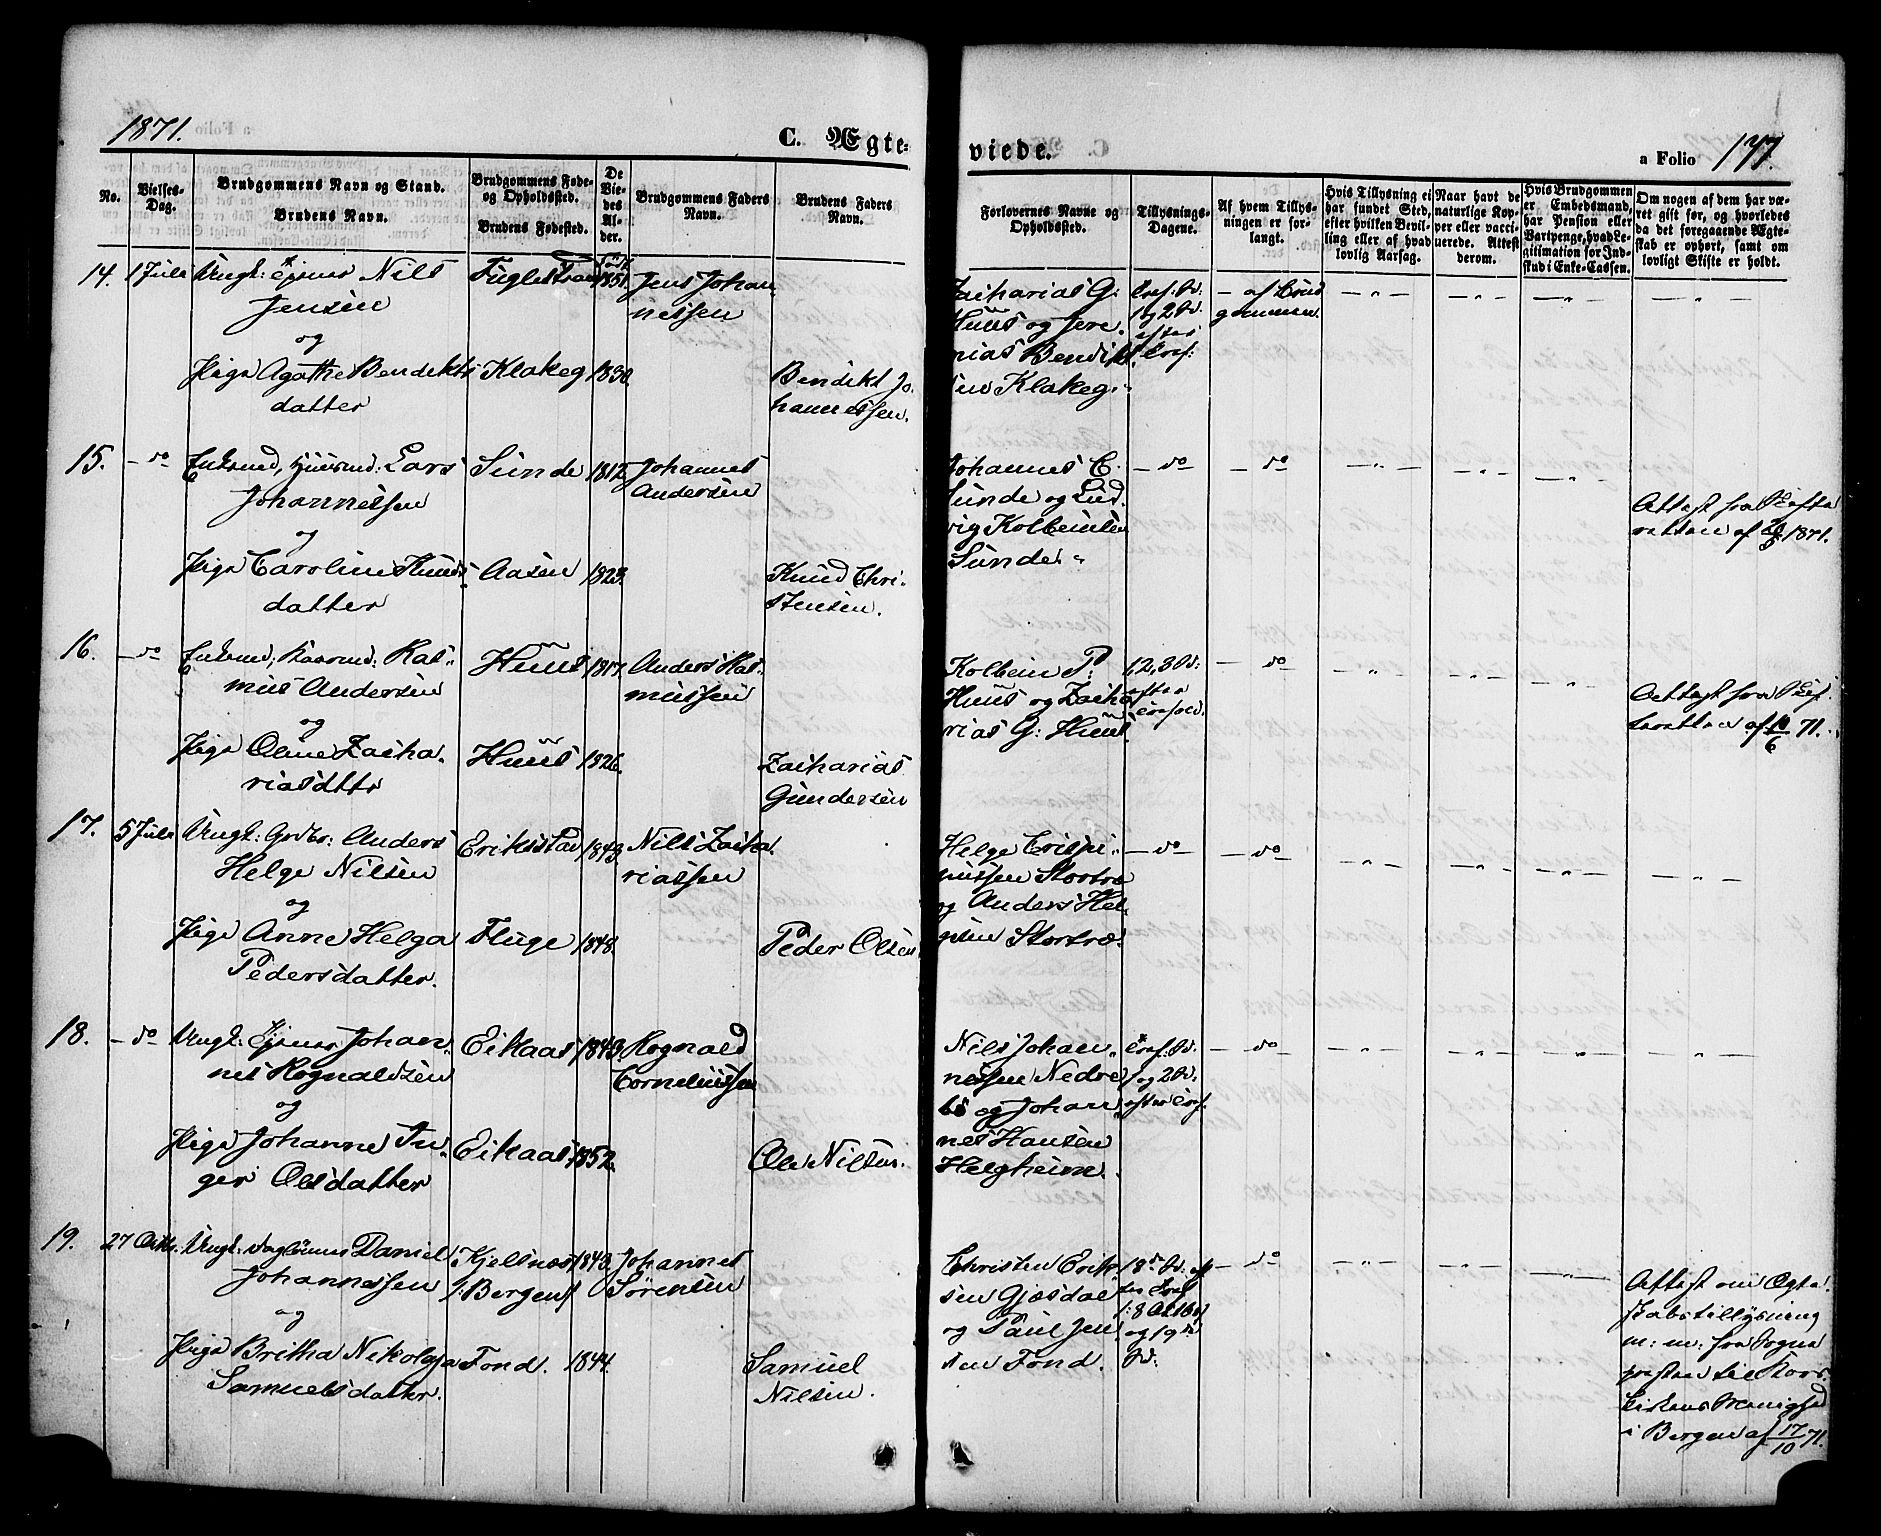 1871.
C. Ægte-
viede.
a Folio 177.
No.
Vielses-
Dag.
Brudgommens Navn og Stand.
Brudens Navn.
Brudgommens Føde-
og Opholdssted.
Brudens Fødested.
De
Vie-
des
Al-
der.
Brudgommens Faders
Navn.
Brudens Faders
Navn.
Forlovernes Navne og
Opholdssted.
Tillysnings-
Dagene.
Af hvem Tillys-
ningen er for-
langt.
Hvis Tillysning ei
har fundet Sted,
efter hvilken Bevil-
ling eller af hvad
lovlig Aarsag.
Naar havt de
naturlige Kop-
per eller vacci-
nerede. Attest
derom.
Hvis Brudgommen
er Embedsmand,
har Pension eller
Vartpenge, hvad Le-
gitimation for Ind-
skud i Enke-Cassen.
Om nogen af dem har væ-
ret gift før, og hvorledes
da det foregaaende Ægte-
skab er ophørt, samt om
lovligt Skifte er holdt.
14. 1 Juli Ungk: Nils
Jensen
og
Pige Agathe Bendikts
datter
Klakeg 1830.
1851.
Jens Johan-
nessen
Bendikt Jo-
hannessen.
Zacharias G.
Huus og Jere-
mias Bendikt
sen Klakeg.
1 og 2 S.
efter
af Brud
gommen
15. - do
Lars
Johannessen
og
Pige Caroline Knuds
datter
Sunde 1812.
Aasen 1823.
Johannes
Andersen
Knud Chri-
stensen.
Johannes E.
Sunde og Lud-
vig Kolbeinsen
Sunde.
- do - - do -
Attest fra Skifte
retten af 1871.
16. - do
Ras-
mus Andersen
og
Pige Oline Zacha-
riasdtr
Huus 1817.
Huus 1826.
Anders Ras-
mussen
Zacharias
Gundersen
Kolbein P.
Huus og Zacha
rias G: Huus.
1, 2, 3 S:
efter
- do -
Attest fra Skif-
teretten af 10/6 71.
17. 5 Juli Ungk: Grdbr: Anders
Helge Nilsen
og
Pige Anne Helga
Pedersdatter.
Erikstad 1843.
Fluge 1848.
Nils Zacha-
riassen
Peder Olsen
Helge Crispi-
nussen Stortræ
og Anders Hel-
gesen Stortræ.
- do - - do -
18. - do Ungk: Johan-
nes Rognaldsen
og
Pige Johanne In-
ger Olsdatter
Eikaas 1843.
Eikaas 1852.
Rognald
Corneliussen
Ole Nilsen.
Nils Johan-
nessen Nedre
bø og Johan-
nes Hansen
Helgheim.
1 og 2 S.
- do -
19. 27 Octbr. Ungk: Daniel
Johannessen
og
Pige Britha Nikolaja
Samuelsdatter.
Kjelsnæs 1843.
/: Bergen :/
Fond. 1844.
Johannes
Sørensen
Samuel
Nilsen.
Christen Erik-
sen Gjesdal
og Paul Jen-
sen Fond.
og 19de
S:
- do -
Attest om Ægte-
skabstillysning
m: m: fra Sogne
præsten til Kors-
kirkens Menighed
i Bergen af 17/10 71.